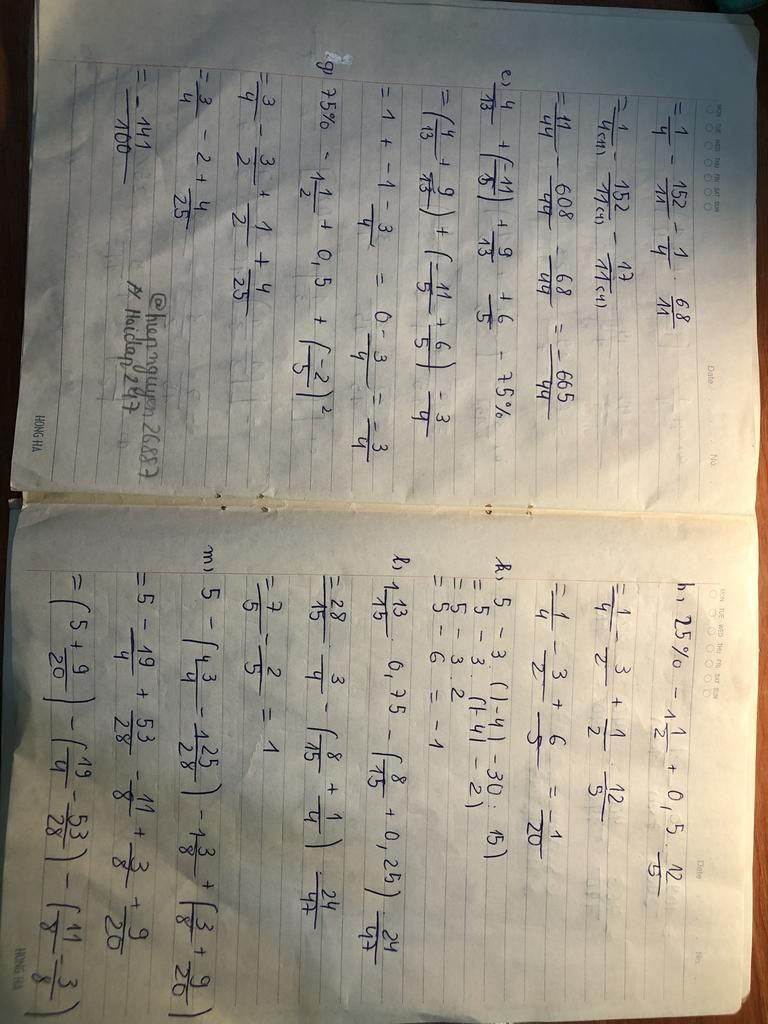 MON TUE WED THU FRI SAT SUN
Date
No.
= 1/4 - 152/11 - 1/4 . 68/11
= 1/4(11) - 152/11(4) - 17/11(4)
= 11/44 - 608/44 - 68/44 = -665/44
e, 4/13 + (-11/5) + 9/13 + 6/5 - 75%
= (4/13 + 9/13) + (-11/5 + 6/5) - 3/4
= 1 + -1 - 3/4 = 0 - 3/4 = -3/4
g, 75% - 1 1/2 + 0,5 + (-2/5)²
= 3/4 - 3/2 + 1/2 + 4/25
= 3/4 - 2 + 4/25
= -141/100
@hiepnguyen26887
Hoidap247
HONG HA
MON TUE WED THU FRI SAT SUN
Date
No.
h, 25% - 1 1/2 + 0,5 . 12/5
= 1/4 - 3/2 + 1/2 . 12/5
= 1/4 - 3/2 + 6/5 = -1/20
k, 5 - 3 . (|-4| - 30 : 15)
= 5 - 3 . (|-4| - 2)
= 5 - 3 . 2
= 5 - 6 = -1
l, 1 13/15 . 0,75 - (8/15 + 0,25) . 24/47
= 28/15 . 3/4 - (8/15 + 1/4) . 24/47
= 7/5 - 2/5 = 1
m, 5 - (4 3/4 - 1 25/28) - 1 3/8 + (3/8 + 9/20)
= 5 - 19/4 + 53/28 - 11/8 + 3/8 + 9/20
= (5 + 9/20) - (19/4 - 53/28) - (11/8 - 3/8)
HONG HA